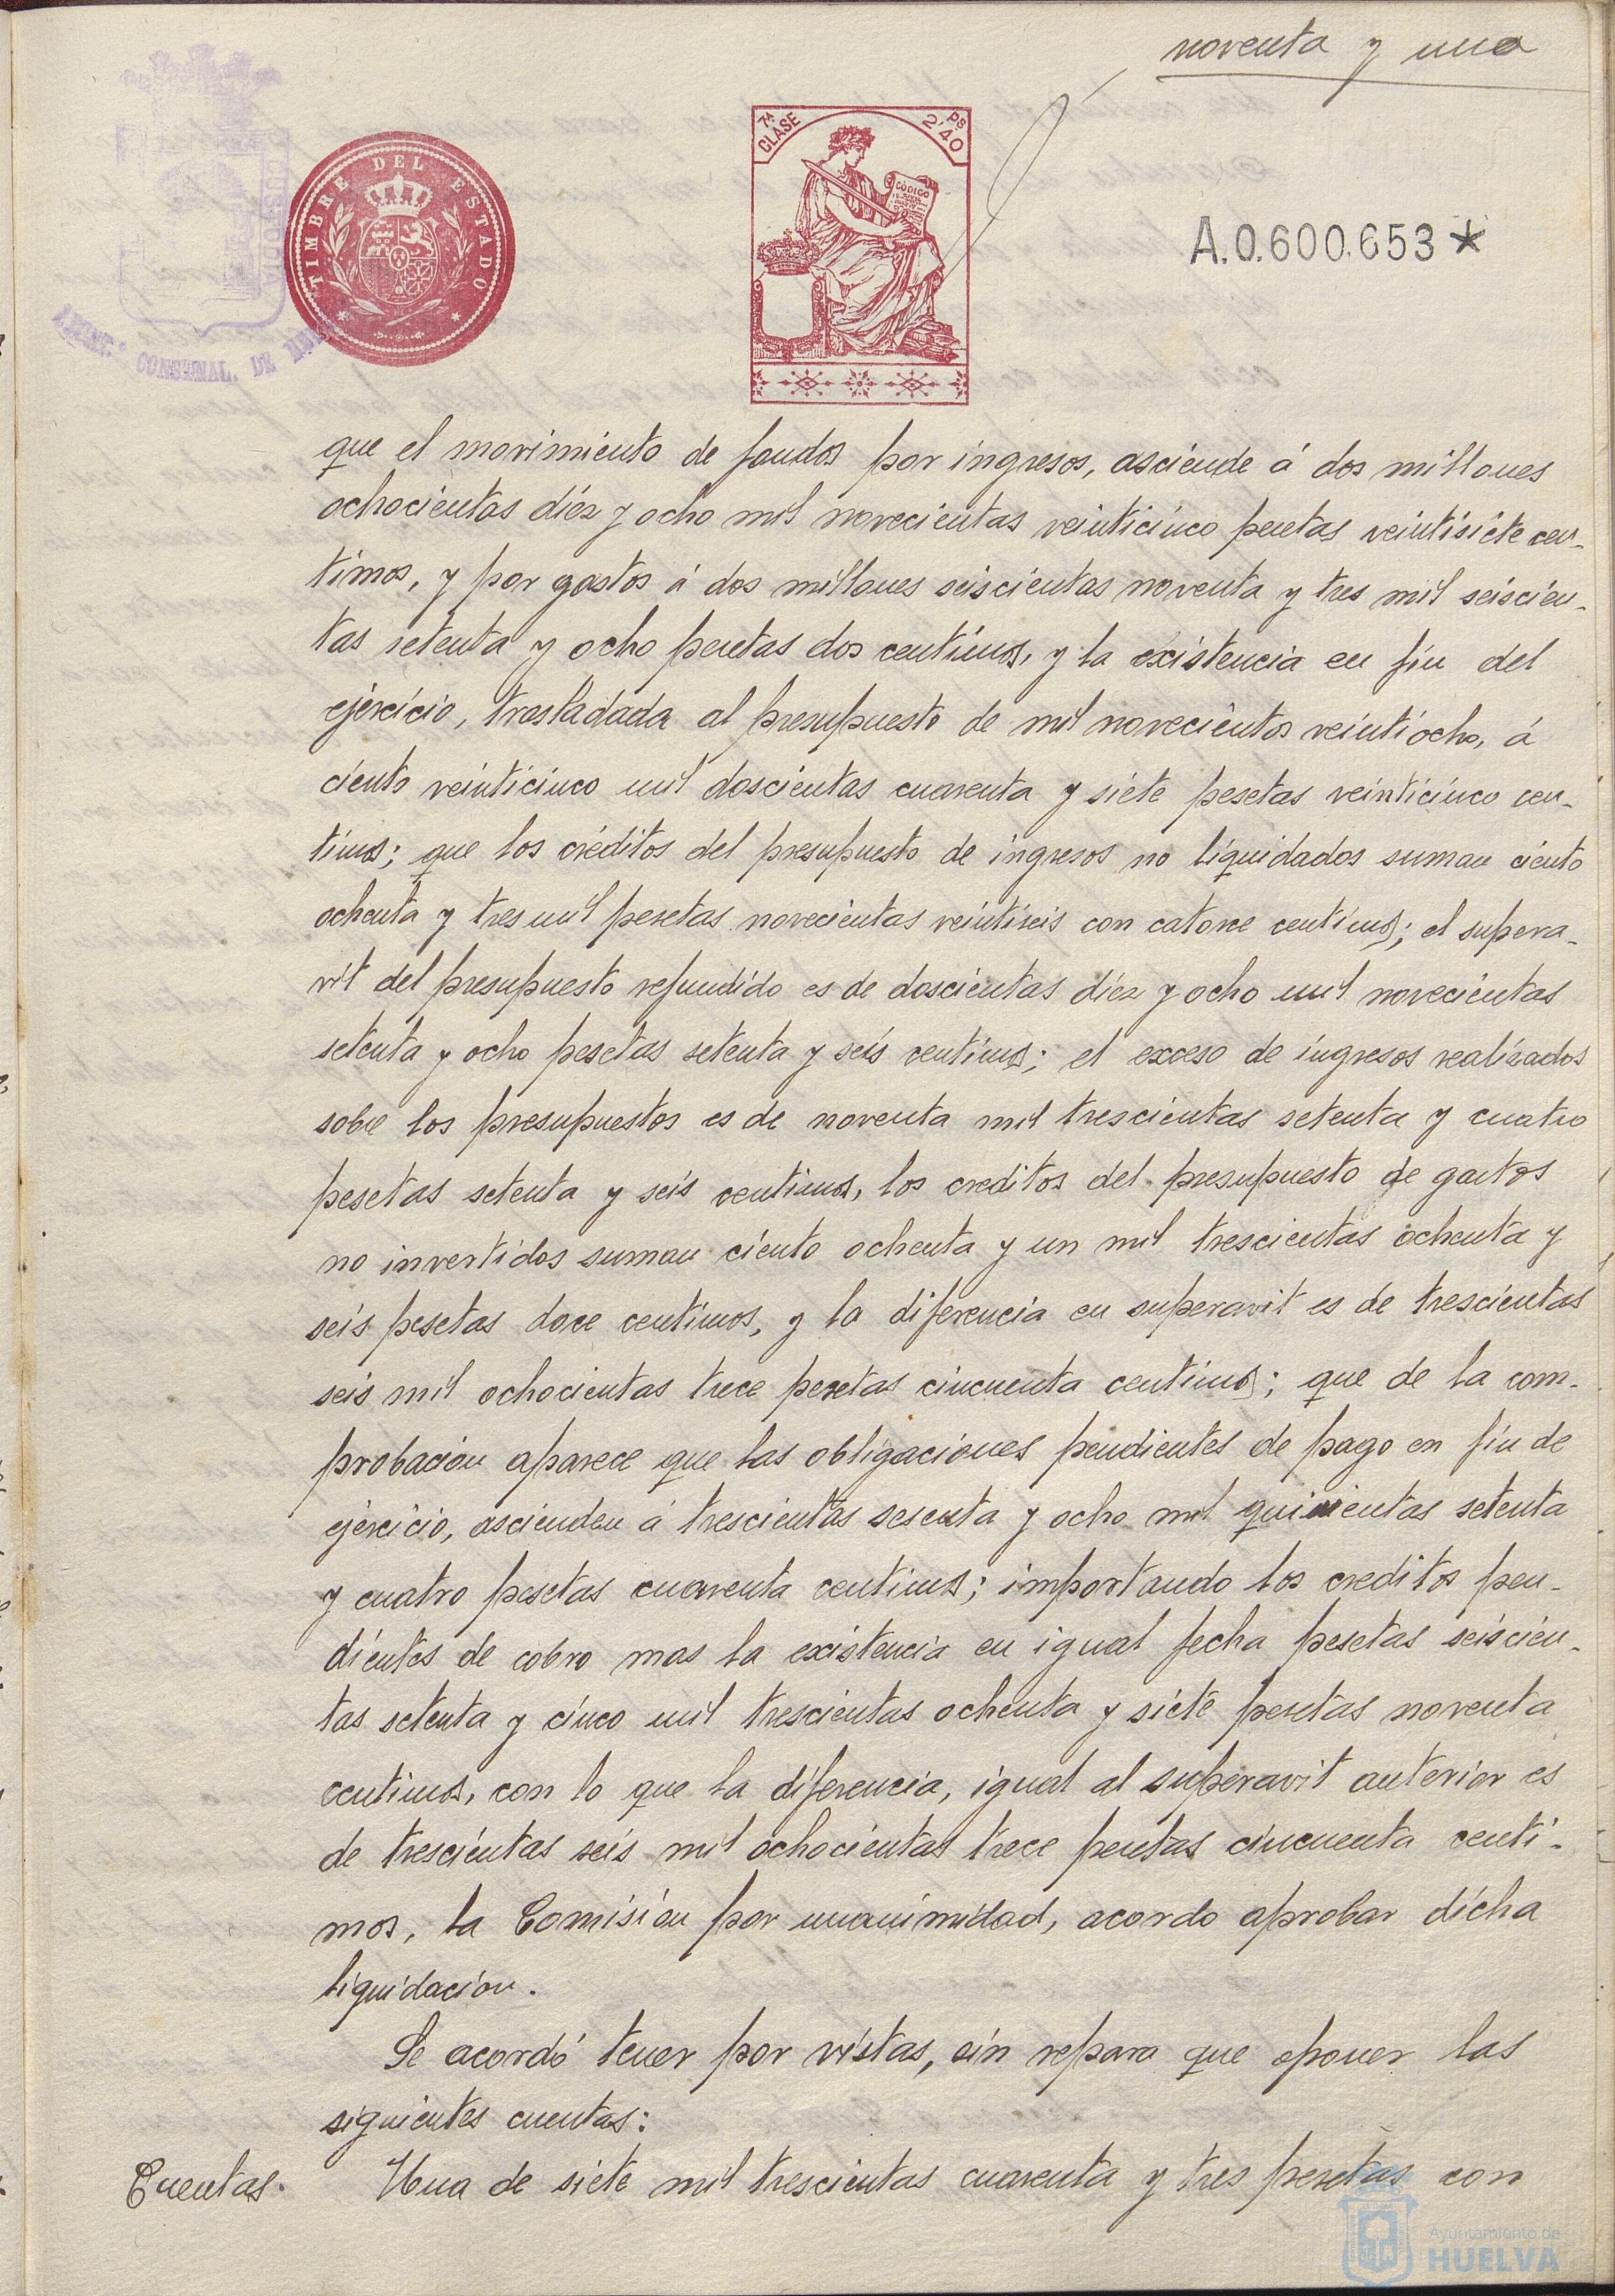 noventa y uno
TIMBRE DEL ESTADO
7ª CLASE
Ps 2'40
CÓDIGO
A.0.600.653*
CONSTNAL. DE
que el movimiento de fondos por ingresos, asciende á dos millones
ochocientas diéz y ocho mil novecientas veinticinco pesetas veintisiete cen-
timos, y por gastos á dos millones seiscientas noventa y tres mil seiscien-
tas setenta y ocho pesetas dos centimos, y la existencia en fin del
ejercicio, trasladada al presupuesto de mil novecientos veintiocho, á
ciento veinticinco mil doscientas cuarenta y siete pesetas veinticinco cen-
timos; que los créditos del presupuesto de ingresos no liquidados suman ciento
ochenta y tres mil pesetas novecientas veintiseis con catorce centimos; el supera-
vit del presupuesto refundido es de doscientas diéz y ocho mil novecientas
setenta y ocho pesetas setenta y seis centimos; el exceso de ingresos realizados
sobre los presupuestos es de noventa mil trescientas setenta y cuatro
pesetas setenta y seis centimos, los creditos del presupuesto de gastos
no invertidos suman ciento ochenta y un mil trescientas ochenta y
seis pesetas doce centimos, y la diferencia en superavit es de trescientas
seis mil ochocientas trece pesetas cincuenta centimos; que de la com-
probación aparece que las obligaciones pendientes de pago en fin de
ejercicio, ascienden á trescientas sesenta y ocho mil quinientas setenta
y cuatro pesetas cuarenta centimos; importando los creditos pen-
dientes de cobro mas la existencia en igual fecha pesetas seiscien-
tas setenta y cinco mil trescientas ochenta y siete pesetas noventa
centimos, con lo que la diferencia, igual al superavit anterior es
de trescientas seis mil ochocientas trece pesetas cincuenta centi-
mos, la Comisión por unanimidad, acordo aprobar dicha
liquidacion.
Se acordó tener por vistas, sin reparo que oponer las
siguientes cuentas:
Cuentas. Una de siete mil trescientas cuarenta y tres pesetas con
Ayuntamiento de
HUELVA